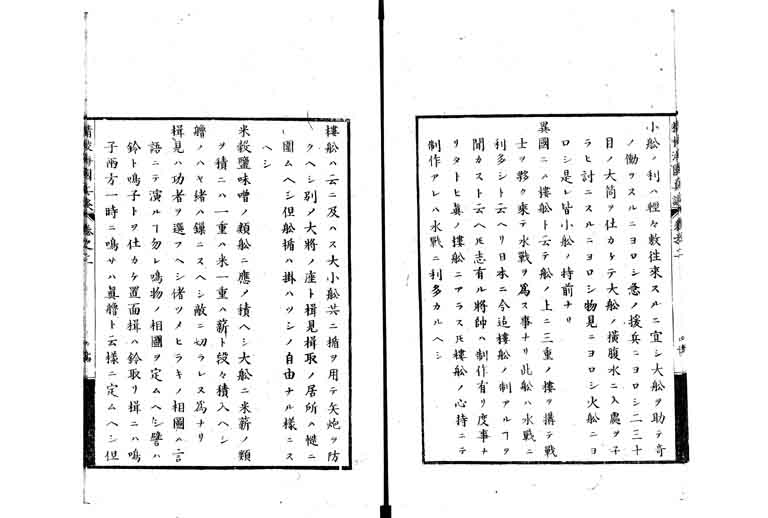 小舩ノ利ハ輕々敷往來スルニ宜シ大舩ヲ助テ奇
ノ働ヲスルニヨロシ急ノ援兵ニヨロシ二三十
目ノ大筒ヲ仕カケテ大舩ノ横腹水ニ入處ヲ子
ラヒ討ニスルニヨロシ物見ニヨロシ火舩ニヨ
ロシ是レ皆小舩ノ持前ナリ
異國ニハ樓舩ト云テ舩ノ上ニ三重ノ樓ヲ搆テ戰
士ヲ夥ク乘テ水戰ヲ為ス事ナリ此舩ハ水戰ニ
利多シト云ヘリ日本ニ今迄樓舩ノ制アルヿヲ
聞カスト云ヘ𪜈志有ル將帥ハ制作有リ度事ナ
リタトヒ眞ノ樓舩ニアラス𪜈樓舩ノ心持ニテ
制作アレハ水戰ニ利多カルヘシ
樓舩ハ云ニ及ハス大小舩共ニ楯ヲ用テ矢炮ヲ防
クヘシ別ノ大將ノ座ト楫見楫取ノ居所ハ慥ニ
圍ムヘシ但舩楯ハ掛ハツシノ自由ナル樣ニス
ヘシ
米穀鹽味噌ノ類舩ニ應ノ積ヘシ大舩ニ米薪ノ類
ヲ積ニハ一重ハ米一重ハ薪ト段々積入ヘシ
艪ノハヤ緒ハ鏁ニスヘシ敵ニ切ラレヌ為ナリ
楫見ハ功者ヲ選フヘシ偖ツメヒラキノ相圖ハ言
語ニテ演ルヿ勿レ鳴物ノ相圖ヲ定ムヘシ譬ハ
鈴ト鳴子トヲ仕カケ置面楫ハ鈴取リ楫ニハ鳴
子兩方一時ニ鳴サハ眞艪ト云樣ニ定ムヘシ但